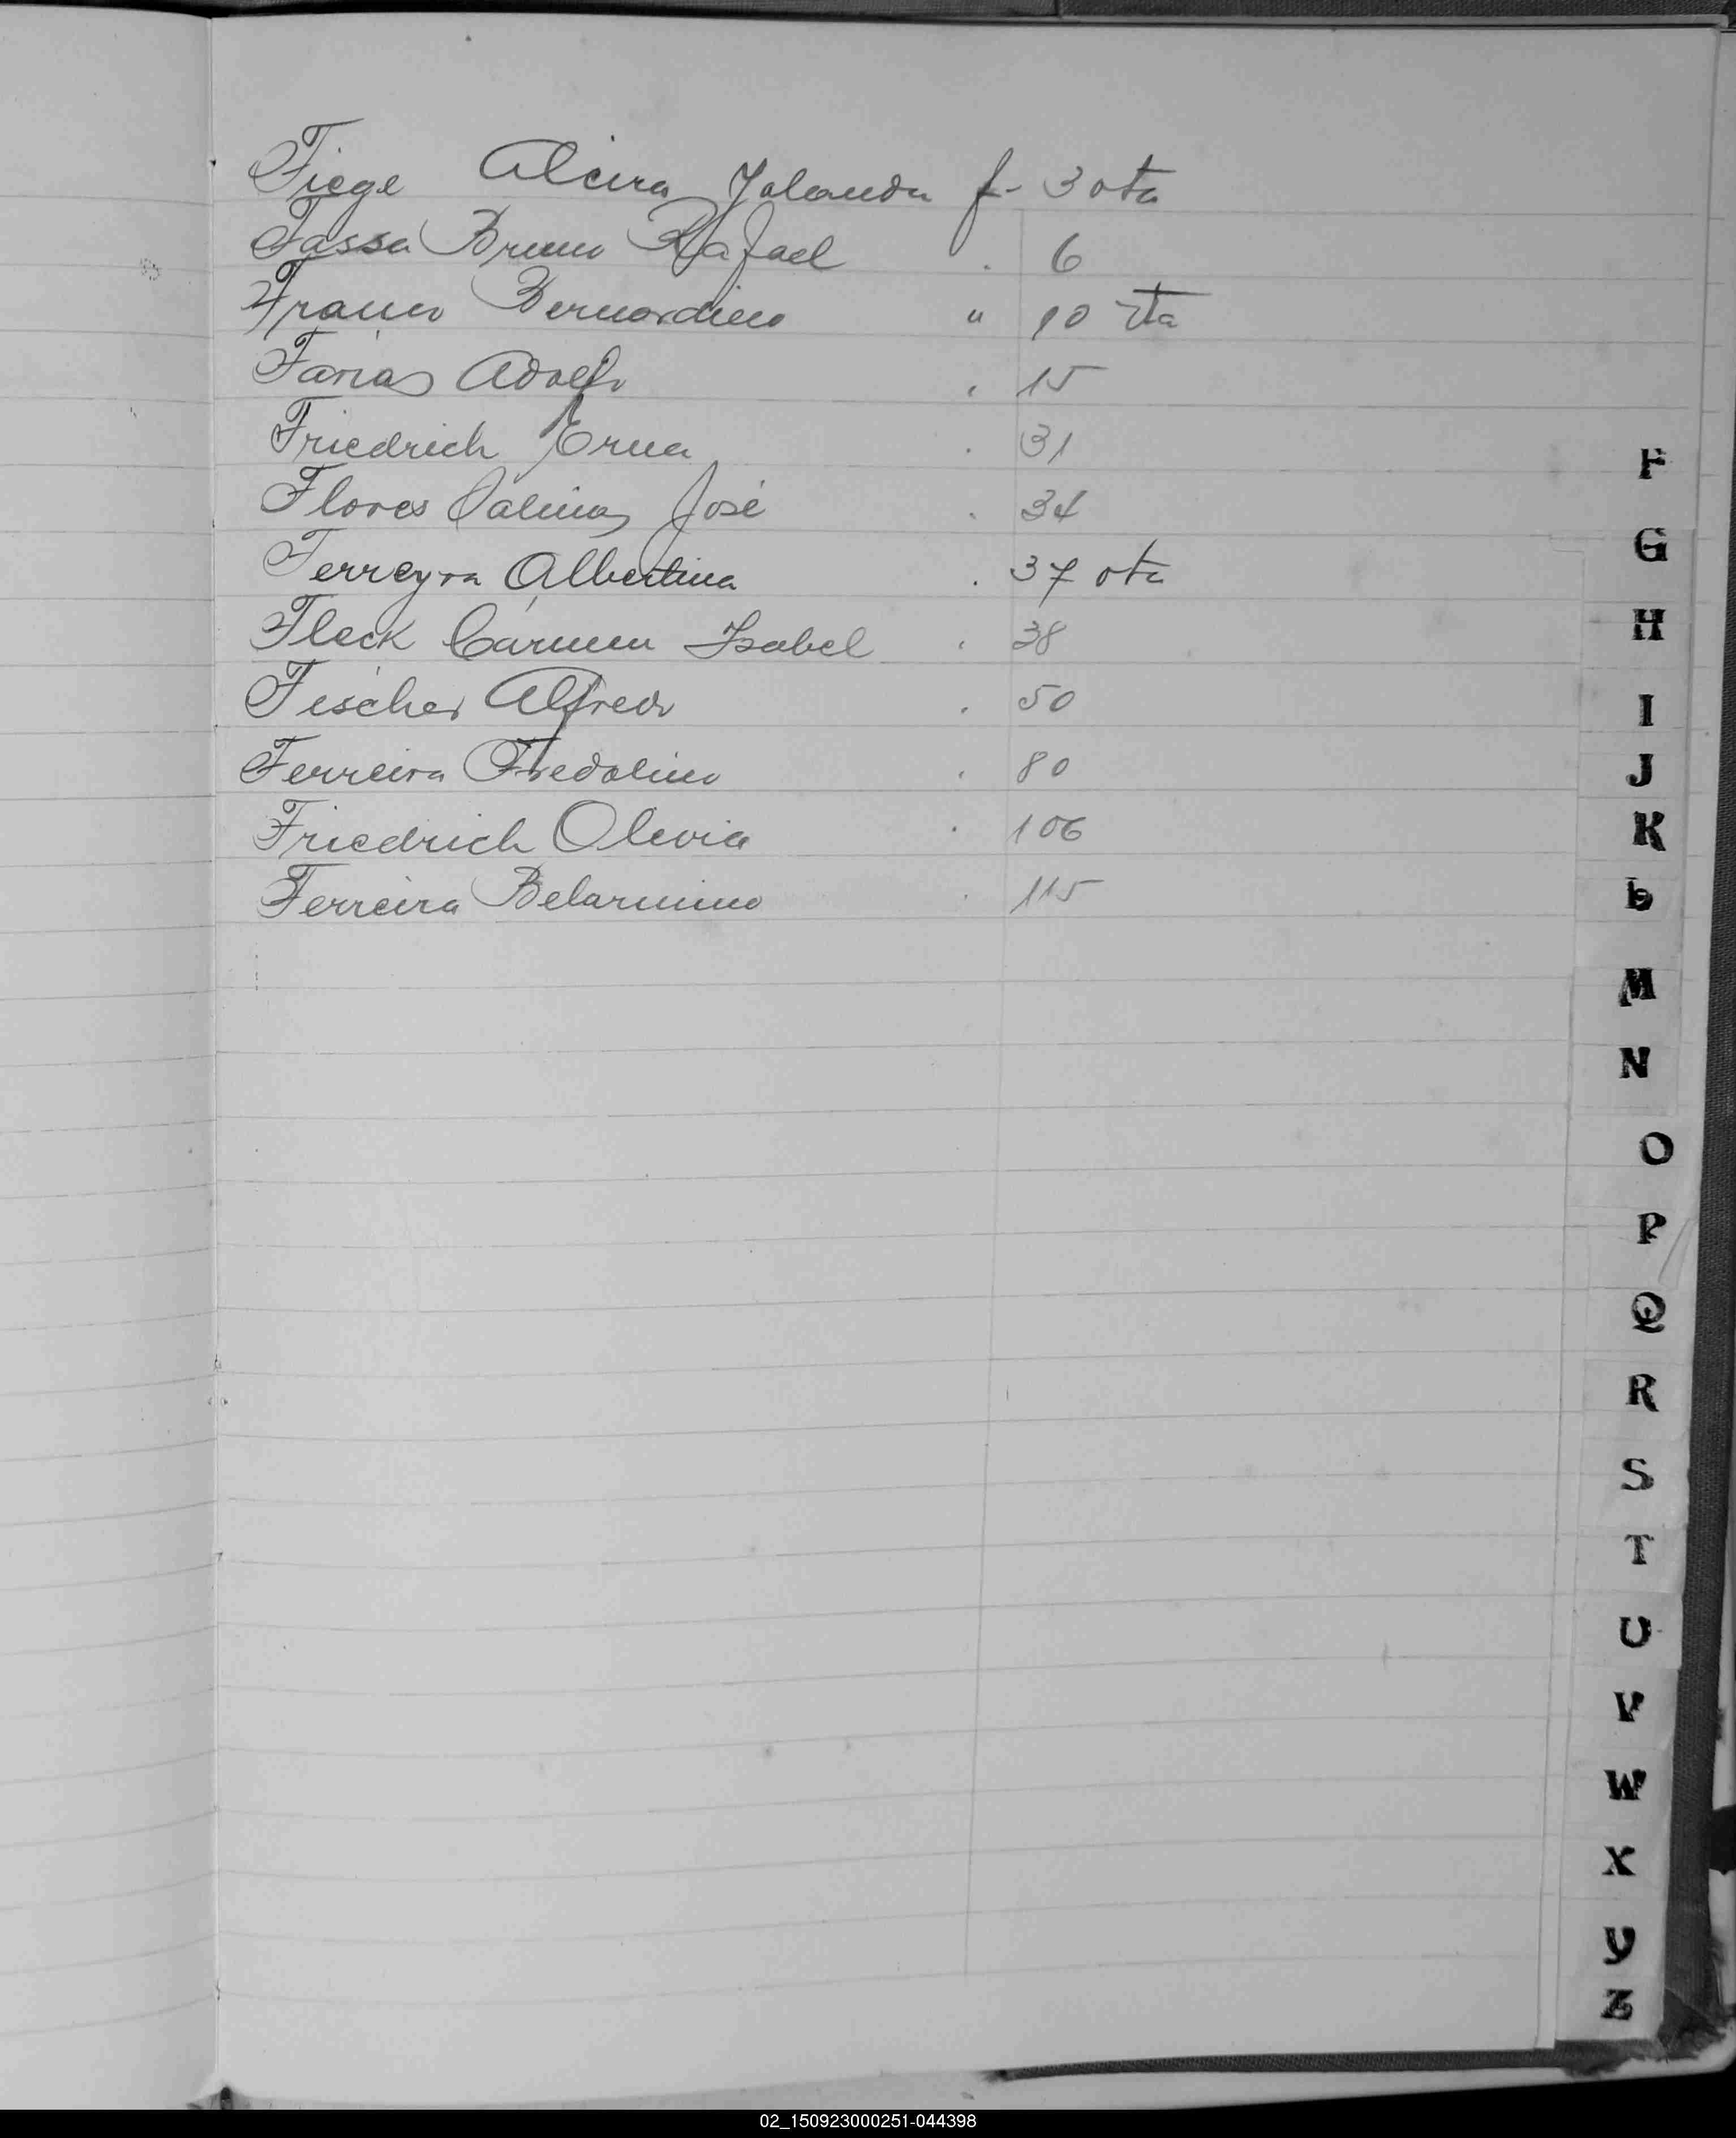 Fiege Alcira Yolanda f- 3 ota
Fassa Bruno Rafael . 6
Franco Bernardino " 10 vta
Farias Adolfo . 15
Friedrich Erna . 31
Flores Salinas José . 34
Ferreyra Albertina . 37 ota
Fleck Carmen Isabel . 38
Fischer Alfredo . 50
Ferreira Fredolino . 80
Friedrich Olivia . 106
Ferreira Belarmino . 115
F
G
H
I
J
K
L
M
N
O
P
Q
R
S
T
U
V
W
X
Y
Z
02_150923000251-044398